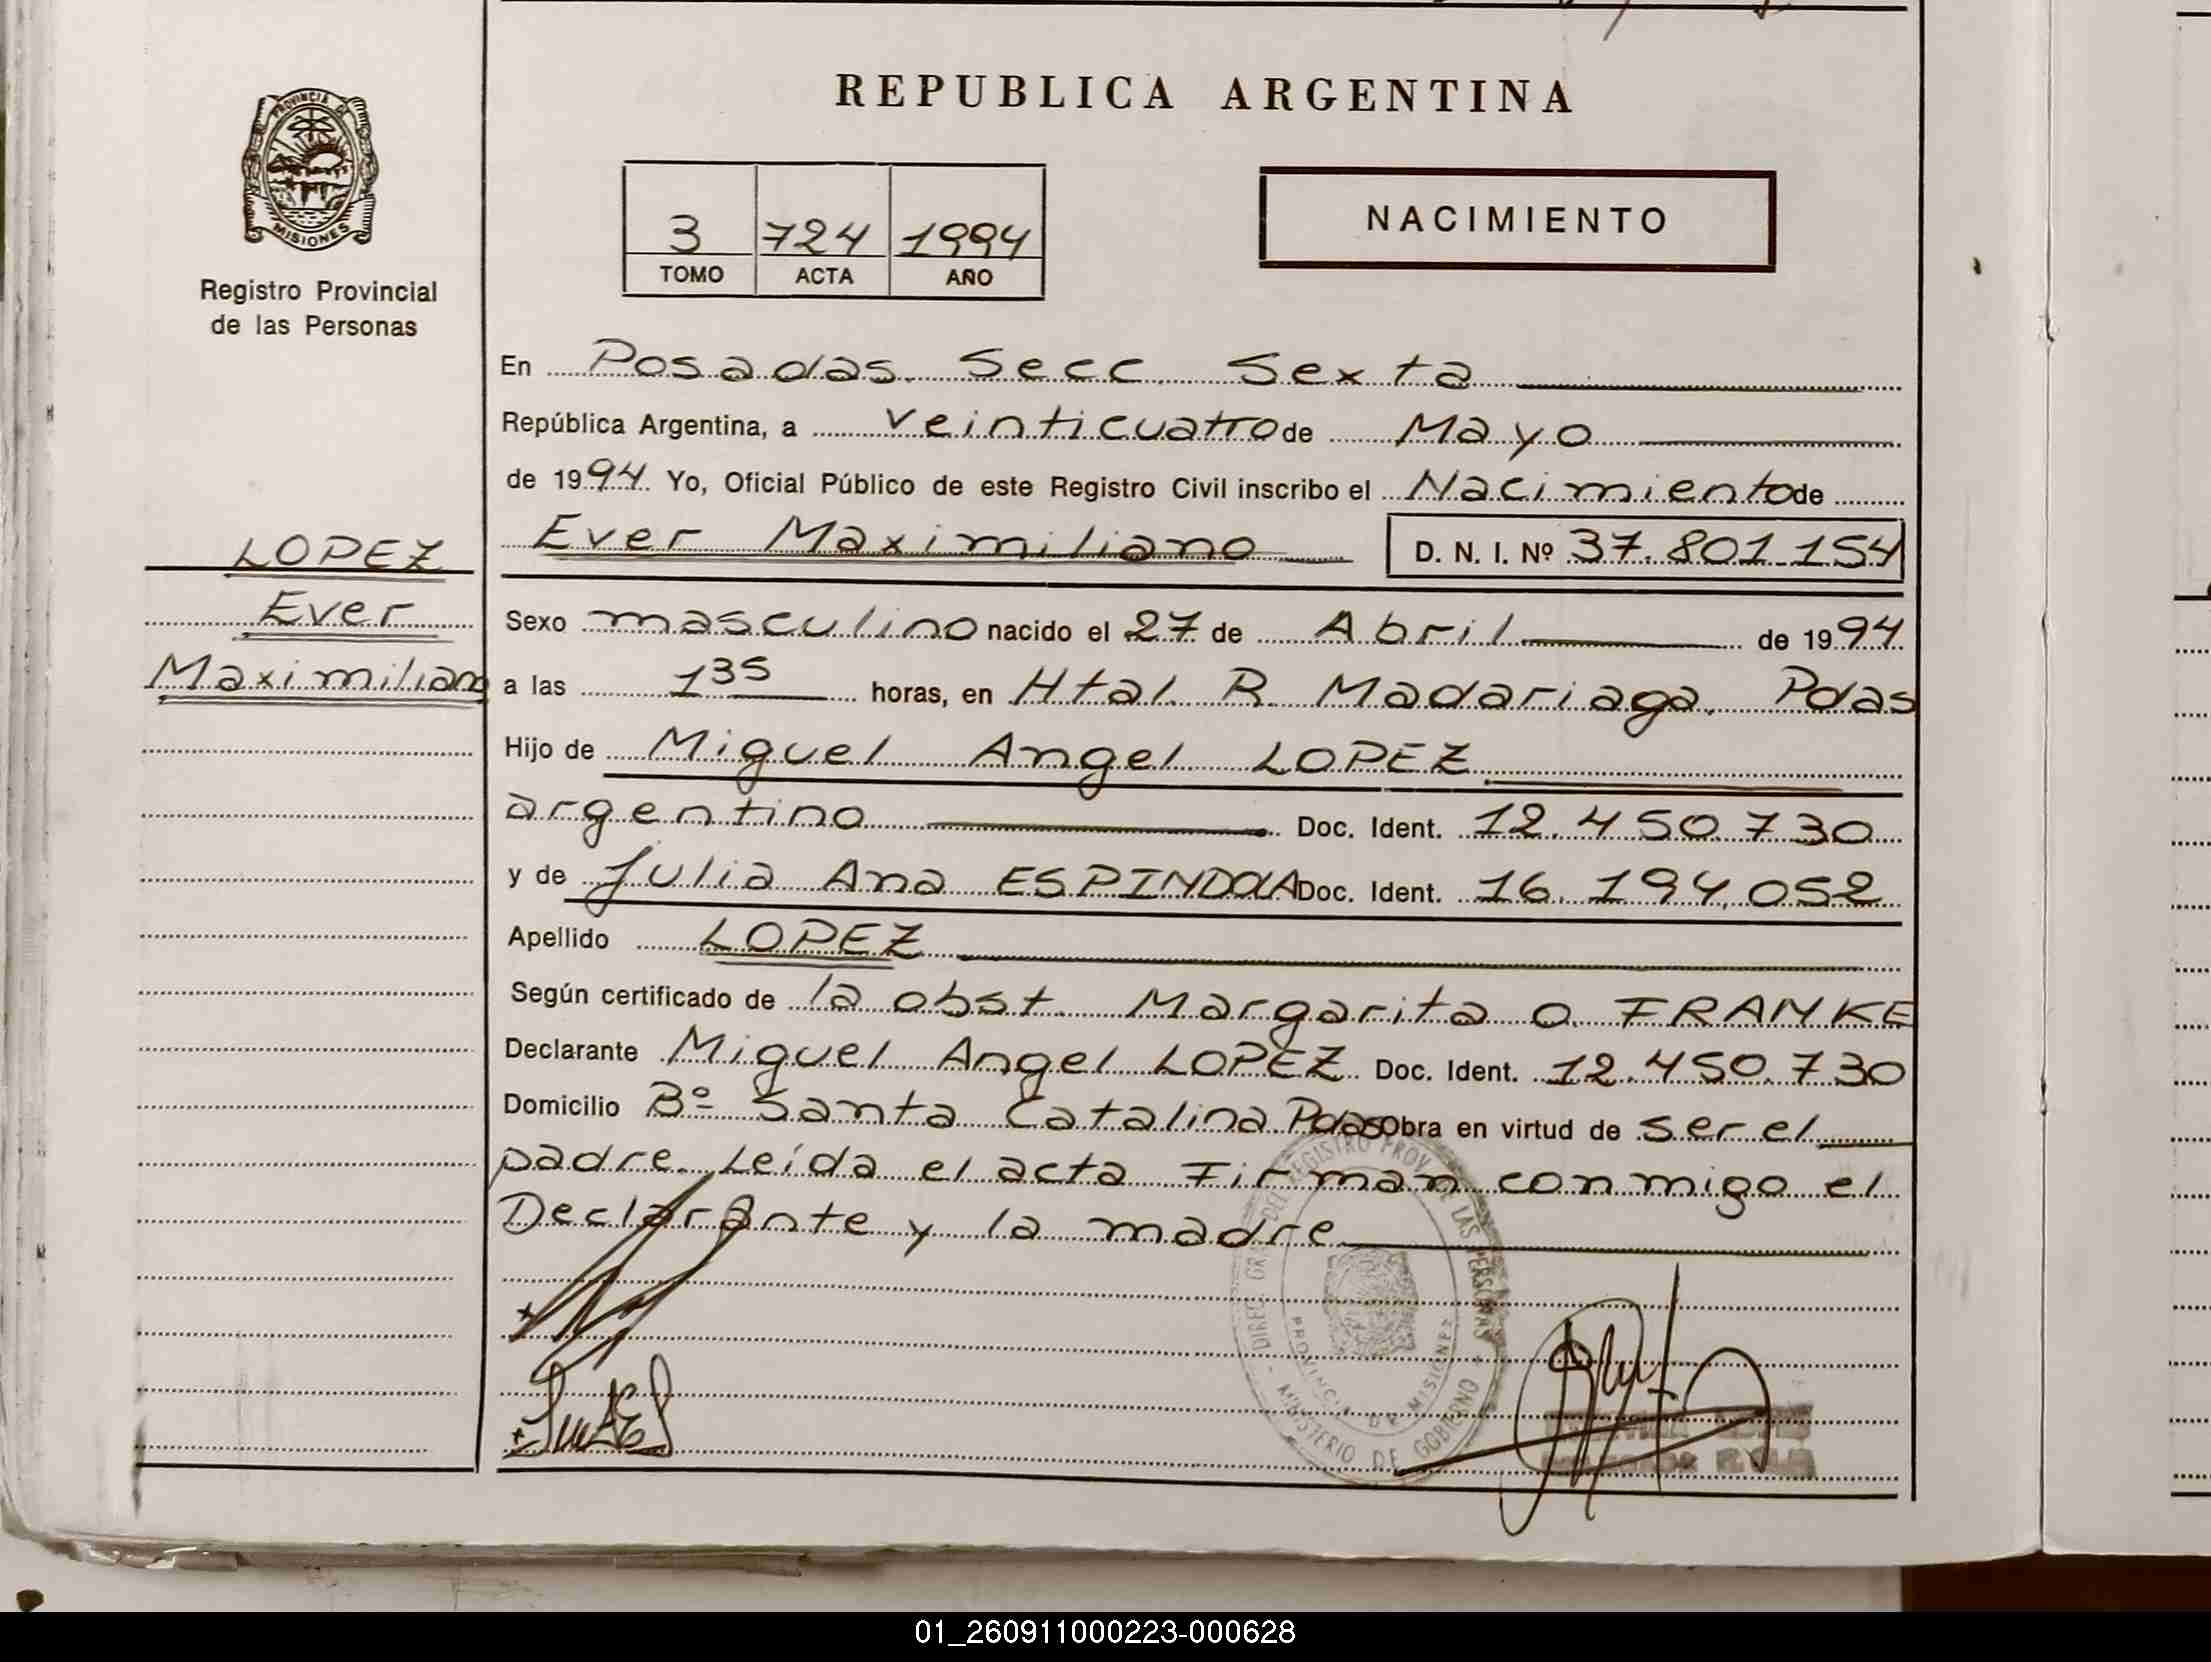 REPUBLICA ARGENTINA
PROVINCIA DE
MISIONES
Registro Provincial
de las Personas
3 724 1994
TOMO ACTA AÑO
NACIMIENTO
En Posadas. Secc. Sexta
República Argentina, a veinticuatro de Mayo
de 1994. Yo, Oficial Público de este Registro Civil inscribo el Nacimiento de
Ever Maximiliano D. N. I. Nº 37.801.154
LOPEZ
Ever
Maximiliano
Sexo masculino nacido el 27 de Abril de 1994
a las 1 35 horas, en Htal. R. Madariaga. Pdas
Hijo de Miguel Angel LOPEZ
argentino Doc. Ident. 12.450.730
y de Julia Ana ESPINDOLA Doc. Ident. 16.194.052
Apellido LOPEZ
Según certificado de la obst. Margarita O. FRANKE
Declarante Miguel Angel LOPEZ Doc. Ident. 12.450.730
Domicilio Bº Santa Catalina Pdas Obra en virtud de ser el
padre. Leída el acta Firman conmigo el
Declarante y la madre
DIREC. GRAL. DEL REGISTRO PROV. DE LAS PERSONAS
PROVINCIA DE MISIONES
MINISTERIO DE GOBIERNO
01_260911000223-000628